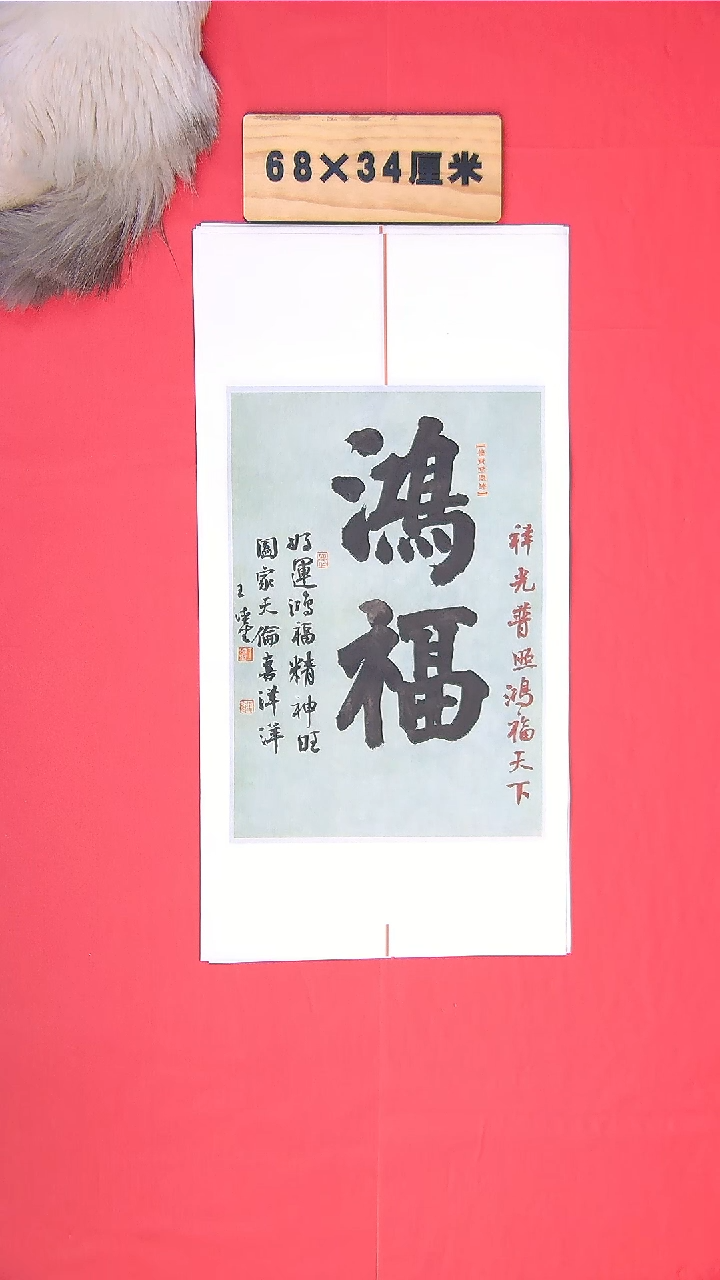 68×34厘米
鸿福
祥光普照鸿福天下
好運鸿福精神旺
園家天倫喜洋洋